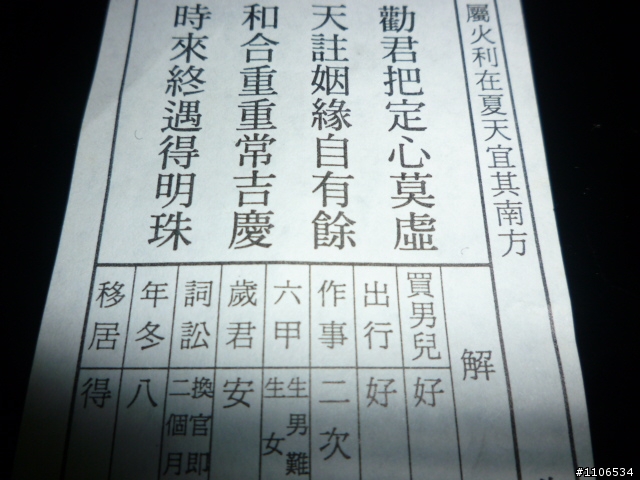 屬火利在夏天宜其南方
勸君把定心莫虛
天註姻緣自有餘
和合重重常吉慶
時來終遇得明珠
解
買男兒 好
出行 好
作事 二次
六甲 生男難生女
歲君 安
詞訟 換官即二個月
年冬 八
移居 得
#1106534